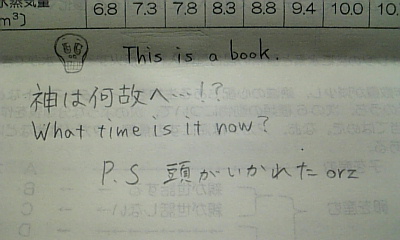 蒸気量 6.8 7.3 7.8 8.3 8.8 9.4 10.0 10.
m³]
This is a book.
神は何故へ…!?
What time is it now?
P.S 頭がいかれた orz